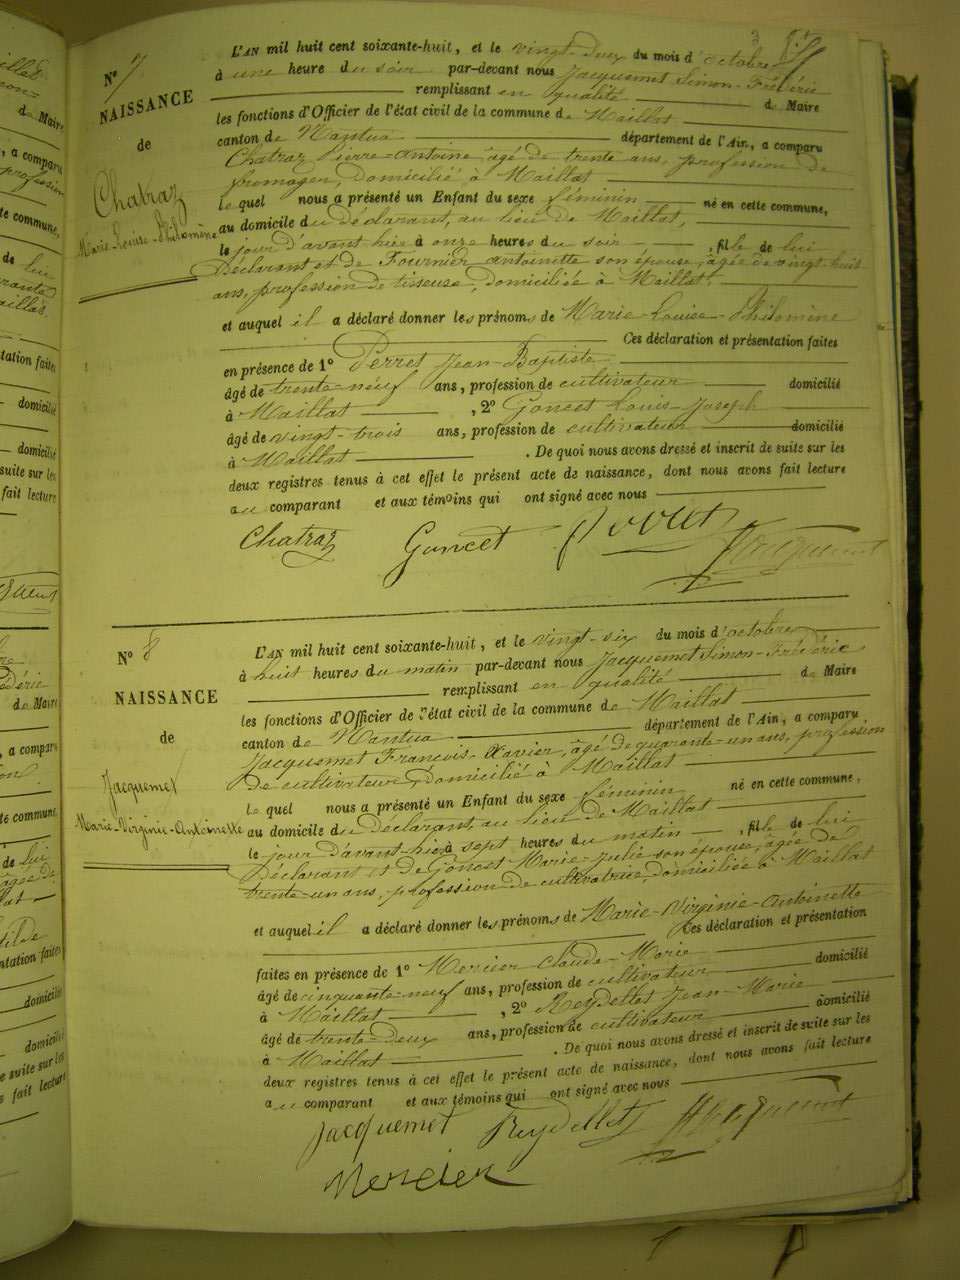 N° 7
NAISSANCE
de
Chatraz
Marie-Louise-Philomène
L'AN mil huit cent soixante-huit, et le vingt-deux du mois d'octobre
à une heure du soir par-devant nous Jacquemet Simon-Frédéric
remplissant en qualité de Maire
les fonctions d'Officier de l'état civil de la commune de Maillat
canton de Nantua département de l'Ain, a comparu
Chatraz Pierre-Antoine, âgé de trente ans, profession de
fromager, domicilié à Maillat
le quel nous a présenté un Enfant du sexe féminin né en cette commune,
au domicile du déclarant, au lieu de Maillat,
le jour d'avant hier à onze heures du soir, fille de lui
Déclarant et de Fournier Antoinette son épouse, âgée de vingt-huit
ans, profession de tisseuse, domiciliée à Maillat,
et auquel il a déclaré donner les prénoms de Marie-Louise-Philomène
Ces déclaration et présentation faites
en présence de 1° Perret Jean-Baptiste
âgé de trente-neuf ans, profession de cultivateur domicilié
à Maillat, 2° Goncet Louis-Joseph
âgé de vingt-trois ans, profession de cultivateur domicilié
à Maillat. De quoi nous avons dressé et inscrit de suite sur les
deux registres tenus à cet effet le présent acte de naissance, dont nous avons fait lecture
au comparant et aux témoins qui ont signé avec nous
Chatraz Goncet Jacquemet
N° 8
NAISSANCE
de
Jacquemet
Marie-Virginie-Antoinette
L'AN mil huit cent soixante-huit, et le vingt-six du mois d'octobre
à huit heures du matin par-devant nous Jacquemet Simon-Frédéric
remplissant en qualité de Maire
les fonctions d'Officier de l'état civil de la commune de Maillat
canton de Nantua département de l'Ain, a comparu
Jacquemet François-Xavier, âgé de quarante-un ans, profession
de cultivateur, domicilié à Maillat
le quel nous a présenté un Enfant du sexe féminin né en cette commune,
au domicile du Déclarant, au lieu de Maillat
le jour d'avant-hier à sept heures du matin, fille de lui
Déclarant et de Goncet Marie-Julie son épouse, âgée de
trente-un ans, profession de cultivatrice, domiciliée à Maillat
et auquel il a déclaré donner les prénoms de Marie-Virginie-Antoinette
Ces déclaration et présentation
faites en présence de 1° Mercier Claude-Marie
âgé de cinquante-neuf ans, profession de cultivateur domicilié
à Maillat, 2° Reydellet Jean-Marie
âgé de trente-deux ans, profession de cultivateur domicilié
à Maillat. De quoi nous avons dressé et inscrit de suite sur les
deux registres tenus à cet effet le présent acte de naissance, dont nous avons fait lecture
au comparant et aux témoins qui ont signé avec nous
Jacquemet Reydellet Jacquemet
Mercier